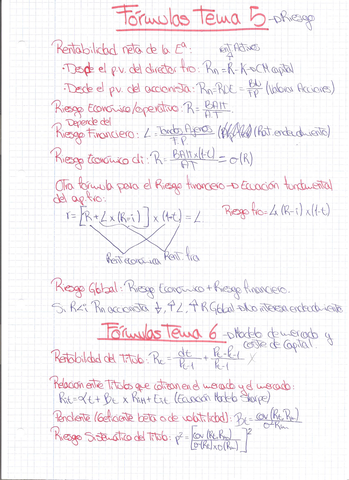 Fórmulas Tema 5 → Riesgo
Rentabilidad neta de la Eª
· Desde el p.v. del director fro: Rn = R - K → CM capital
· Desde el p.v. del acciona: Rn = RDE = BN/TP (Valorar Acciones)
Riesgo Económico/operativo: R = BAIT/AT
Depende del
Riesgo Financiero: L = Fondos Ajenos/T.P. (Rat. endeudamiento)
Riesgo Económico di: R = BAIT x (1-t)/AT = σ(R)
Otra fórmula para el Riesgo financero → Ecuación fundamental
del ap. fro:
r = [R + L x (R-i)] x (1-t) = L Riesgo fro = L x (R-i) x (1-t)
Rent económica Rent. fra
Riesgo Global: Riesgo Económico + Riesgo financero.
Si R<i Rn accionista ↓, ↑L, ↑R Global → No interesa endeudamiento
Fórmulas Tema 6 → Modelo de mercado y
coste de Capital
Rentabilidad del Título: Rt = dt/Pt-1 + Pt - Pt-1/Pt-1
Relación entre Títulos que cotizan en el mercado y el mercado:
Rit = αt + Bt x RMt + Eit (Ecuación Modelo Sharpe)
Pendiente (Coeficiente beta o de volatilidad): Bt = cov(Rt, Rm)/σ²Rm
Riesgo Sistemático del Título: ρ² = [cov(Rt, Rm)/σ(Rt) x σ(Rm)]²